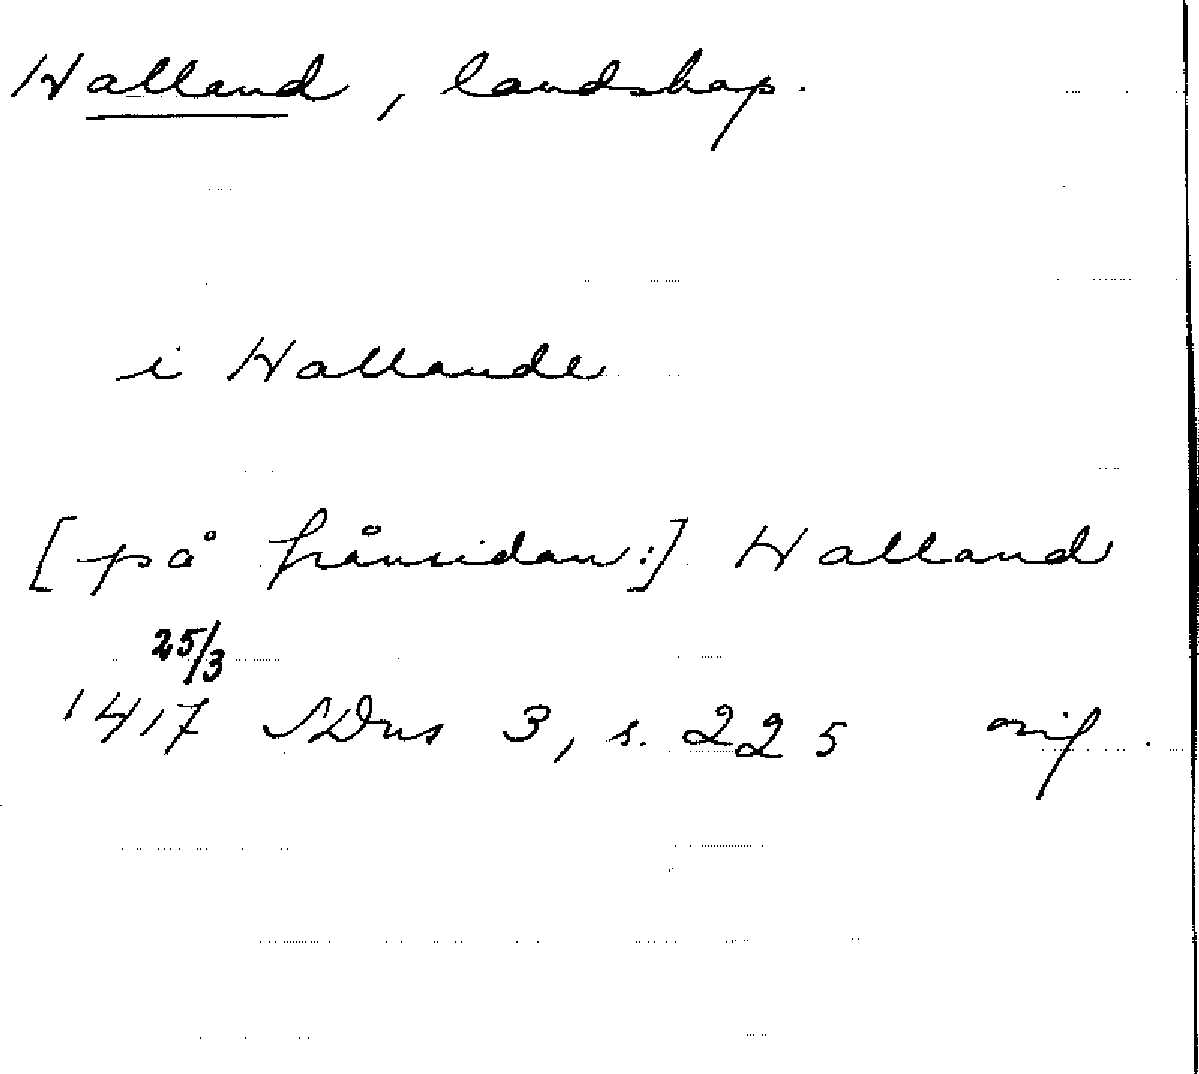 Halland, landskap.
i Hallande
[på frånsidan:] Halland
25/3
1417 SDns 3, s. 225 orig.